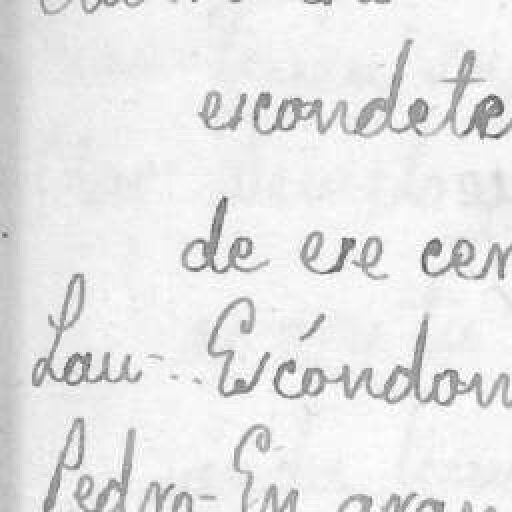 escondete
de ese cer
Lau-.. Escóndon
Pedro- En